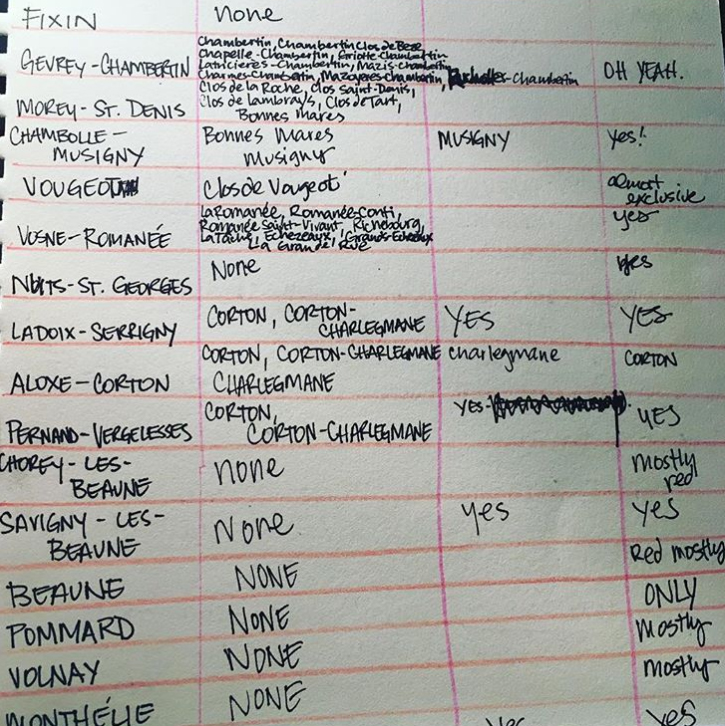 FIXIN none
Chambertin, Chambertin Clos de Beze
Chapelle-Chambertin, Griotte-Chambertin
GEVREY-CHAMBERTIN Latricieres-Chambertin, Mazis-Chambertin OH YEAH.
Charmes-Chambertin, Mazoyeres-Chambertin, -Chambertin
Clos de la Roche, Clos Saint-Denis,
MOREY-ST. DENIS Clos de Lambrays, Clos de Tart,
Bonnes Mares
CHAMBOLLE- Bonnes Mares MUSIGNY yes!
MUSIGNY Musigny
VOUGEOT Clos de Vougeot almost
exclusive
La Romanée, Romanée-Conti, yes
Romanée Saint-Vivant, Richebourg,
VOSNE-ROMANÉE La Tâche, Echezeaux, Grands-Echezeaux
La Grande Rue
None yes
NUITS-ST. GEORGES
LADOIX-SERRIGNY CORTON, CORTON- YES YES
CHARLEGMANE
CORTON, CORTON-CHARLEGMANE charlegmane CORTON
ALOXE-CORTON CHARLEGMANE
CORTON, yes- YES
PERNAND-VERGELESSES CORTON-CHARLEGMANE
CHOREY-LES- none mostly
BEAUNE red
SAVIGNY-LES- None yes YES
BEAUNE Red mostly
BEAUNE NONE ONLY
POMMARD NONE mostly
VOLNAY NONE mostly
MONTHÉLIE NONE yes yes